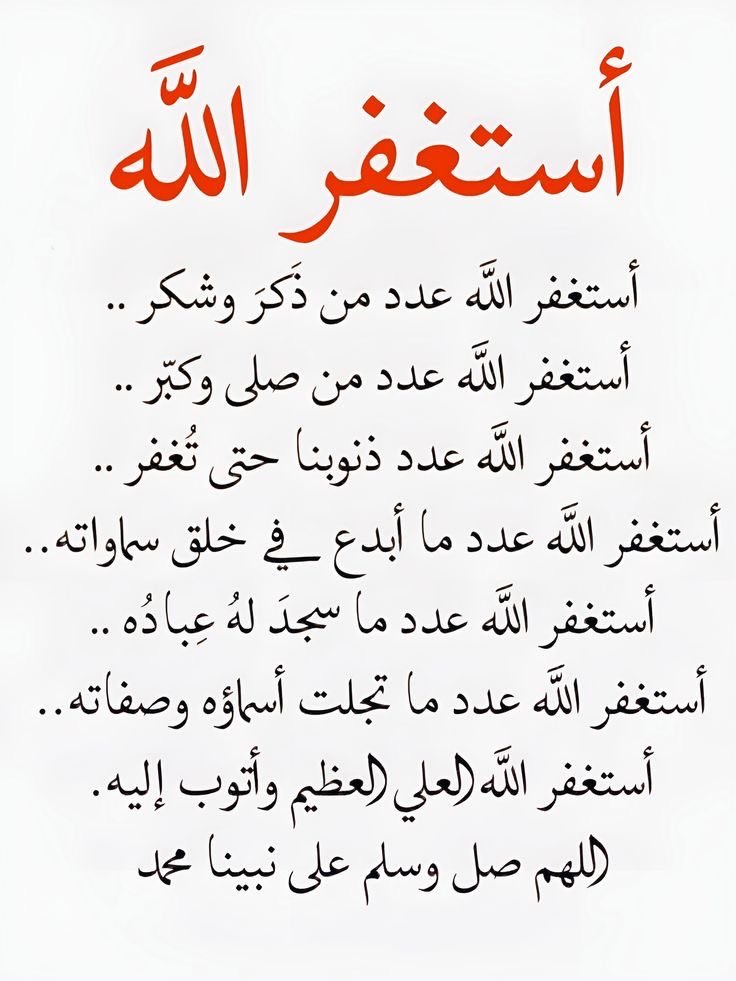 أستغفر اللَّه
أستغفر اللَّه عدد من ذَكرَ وشكر ..
أستغفر اللَّه عدد من صلى وكبّر ..
أستغفر اللَّه عدد ذنوبنا حتى تُغفر ..
أستغفر اللَّه عدد ما أبدع في خلق سماواته..
أستغفر اللَّه عدد ما سجدَ لهُ عِبادُه ..
أستغفر اللَّه عدد ما تجلت أسماؤه وصفاته..
أستغفر اللَّه العلي العظيم وأتوب إليه.
اللهم صل وسلم على نبينا محمد